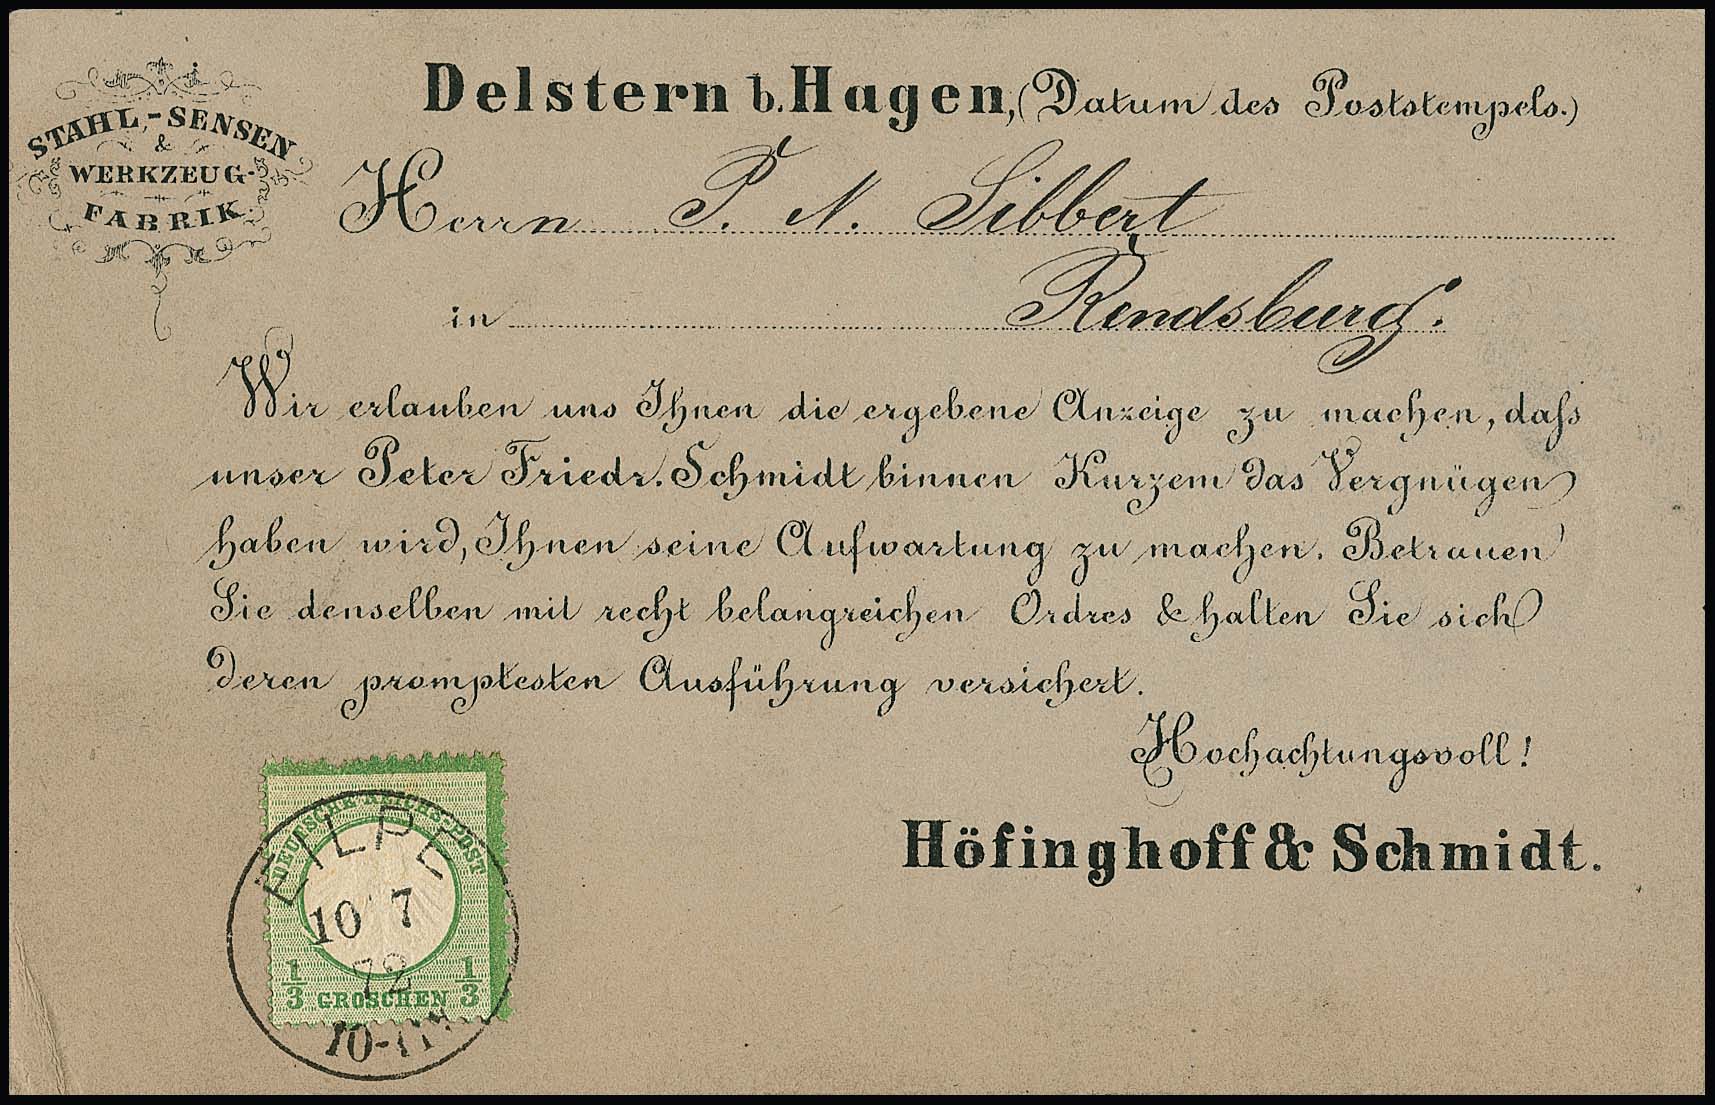 STAHL,-SENSEN
&
WERKZEUG-
FABRIK
Delstern b. Hagen, (Datum des Poststempels.)
Herrn P. N. Sibbert
in Rendsburg.
Wir erlauben uns Ihnen die ergebene Anzeige zu machen, daſs
unser Peter Friedr. Schmidt binnen Kurzem das Vergnügen
haben wird, Ihnen seine Aufwartung zu machen. Betrauen
Sie denselben mit recht belangreichen Ordres & halten Sie sich
deren promptesten Ausführung versichert.
Hochachtungsvoll!
Höfinghoff & Schmidt.
DEUTSCHE REICHS-POST
1/3 GROSCHEN 1/3
EILPE
10 7
72